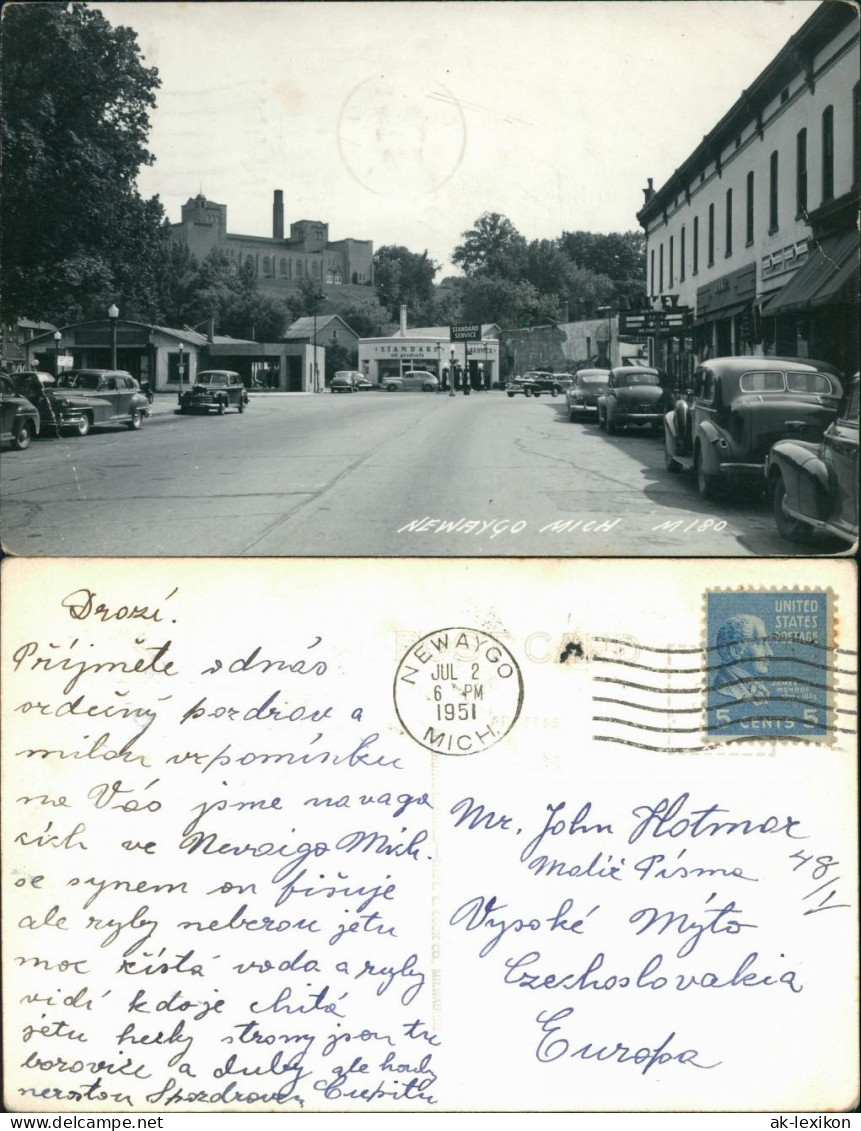 STANDARD
STANDARD SERVICE
NEWAYGO MICH M180
Drozí.
Příjměte odnás
srdečný pozdrav a
milou vzpomínku
na Vás jsme na vaga
cích ve Nevaigo Mich.
se synem on fišuje
ale ryby neberou jětu
moc čistá voda a ryby
vidí kdoje chitá
jětu hezky stromy jsou tu
borovice a duby ale houby
nerostou Spozdravem
NEWAYGO
JUL 2
6 PM
1951
MICH.
POST CARD
UNITED
STATES
POSTAGE
JAMES
MONROE
5 CENTS 5
Mr. John Hotmar
Malíř Písma 48/I
Vysoké Mýto
Czechoslovakia
Europa
delcampe.net
ak-lexikon